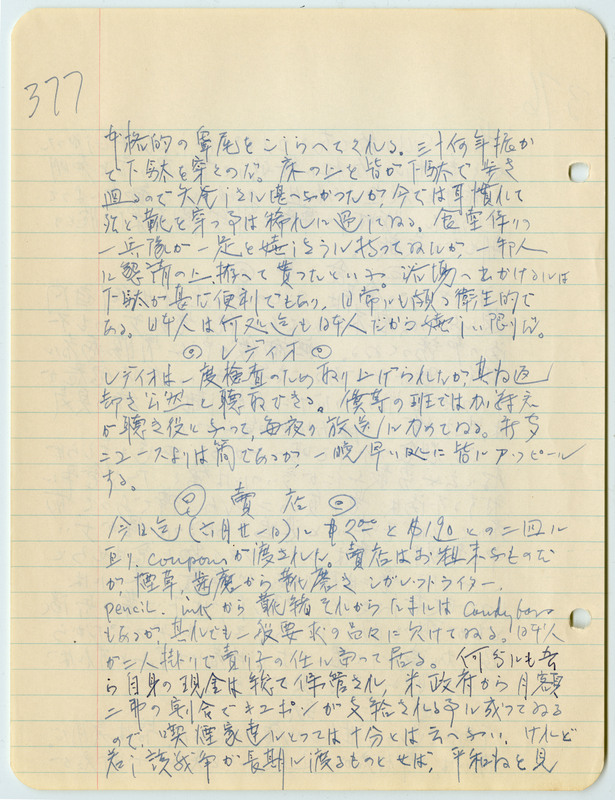 377
本格的の鼻尾をこしらへてくれる。三十何年振か
で下駄を穿くのだ。床の上を皆が下駄で歩き
廻るので矢釜しさに堪へなかつたが今では耳慣れて
殆ど靴を穿つ事は稀れに過してゐる。
一兵隊が一足を嬉しさうに持つてゐるんが、一邦人
に懇請の上、拵へて貰つたといふ。浴場へ出かけるには
下駄が甚だ便利でもあり、日常にも頗る衛生的で
ある。日本人は何処迄も日本人だから嬉しい限りだ。
◎ レディオ ◎
レディオは一度検査のため取り上げられたが其後返
却され公然と聴取できる。僕等の班では
が聴き役となつて、毎夜の放送に力めてゐる。
ニュースよりは簡であるが、一晩早い処に皆にアッピール
する。
◎ 賣店 ◎
今日迄(六月廿一日)に $2.00 と $1.90 との二回に
亘り、coupon が渡された。賣店はお粗末なものだ
が、煙草、歯磨から靴磨き シガレットライター、
pencil、ink から靴緒 それから たまには candy bars
もあるが、其れでも一般要求の品々に欠けてゐる。日本人
が二人掛りで賣り子の任に当って居る。何分にも吾
ら自身の現金は総て保管され、米政府から月額
二弗の割合でキューポンが支給される事に成つてゐる
ので、喫煙家達にとつては十分とは云へない。けれど
若し該戦争が長期に渡るものとせば、平和ねを見